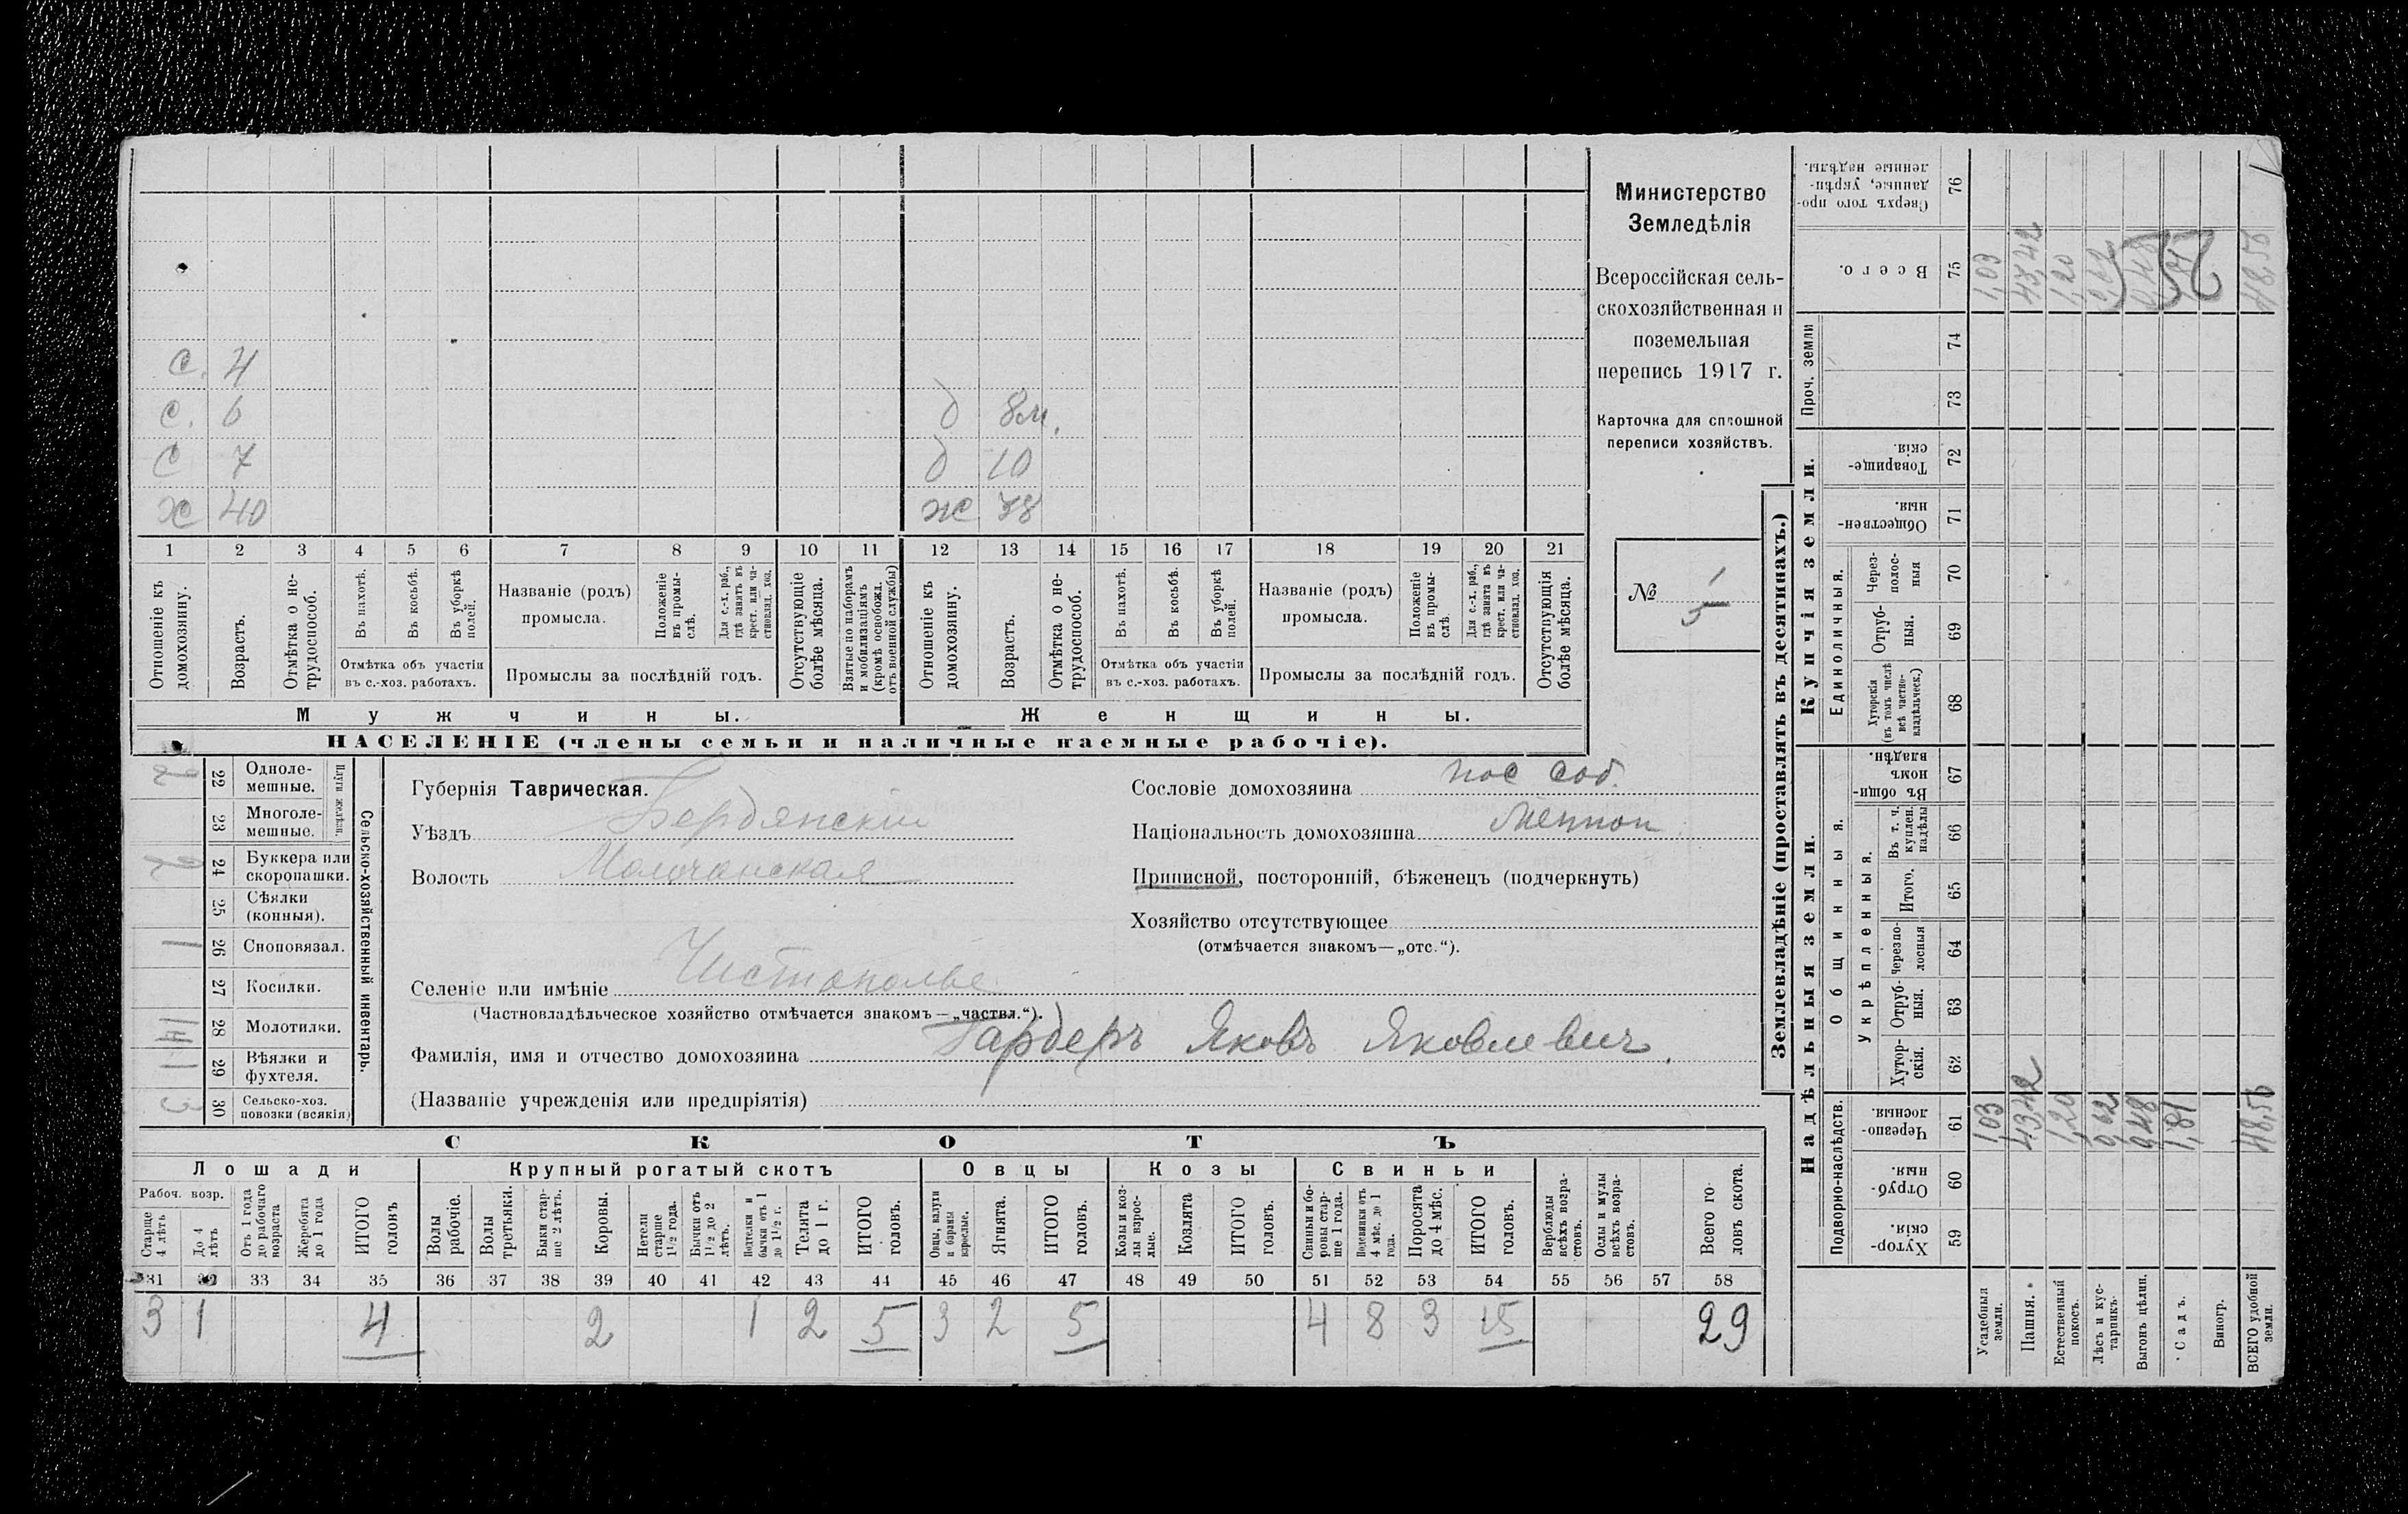 Министерство
Земледѣлія
Всероссійская сель-
скохозяйственная и
поземельная
перепись 1917 г.
Карточка для сплошной
переписи хозяйствъ.
№ 1
5
с. 4
с. 6
д 8 м.
с 7
д 10
х 40
ж 38
1 2 3 4 5 6 7 8 9 10 11 12 13 14 15 16 17 18 19 20 21
Отношеніе къ домохозяину.
Возрастъ.
Отмѣтка о не-трудоспособ.
Въ пахотѣ.
Въ косьбѣ.
Въ уборкѣ полей.
Отмѣтка объ участіи въ с.-хоз. работахъ.
Названіе (родъ) промысла.
Положеніе въ промы-слѣ.
Для с.-х. раб., гдѣ занятъ въ крест. или ча-стновлад. хоз.
Промыслы за послѣдній годъ.
Отсутствующіе болѣе мѣсяца.
Взятые по наборамъ и мобилизаціямъ (кромѣ освобожд. отъ военной службы)
Отношеніе къ домохозяину.
Возрастъ.
Отмѣтка о не-трудоспособ.
Въ пахотѣ.
Въ косьбѣ.
Въ уборкѣ полей.
Отмѣтка объ участіи въ с.-хоз. работахъ.
Названіе (родъ) промысла.
Положеніе въ промы-слѣ.
Для с.-х. раб., гдѣ занята въ крест. или ча-стновлад. хоз.
Промыслы за послѣдній годъ.
Отсутствующія болѣе мѣсяца.
Мужчины.
Женщины.
НАСЕЛЕНІЕ (члены семьи и наличные наемные рабочіе).
Сельско-хозяйственный инвентарь.
Плуги желѣзн.
22 Одноле-мешные.
23 Многоле-мешные.
24 Буккера или скоропашки.
25 Сѣялки (конныя).
1 26 Сноповязал.
27 Косилки.
28 Молотилки.
1 29 Вѣялки и фухтеля.
3 30 Сельско-хоз. повозки (всякія)
Губернія Таврическая.
Уѣздъ Бердянскій
Волость Молочанская
Селеніе или имѣніе Чистополье
(Частновладѣльческое хозяйство отмѣчается знакомъ—„частвл.“).
Фамилія, имя и отчество домохозяина Гардеръ Яковъ Яковлевич.
(Названіе учрежденія или предпріятія)
Сословіе домохозяина пос соб.
Національность домохозяина Меннон
Приписной, посторонній, бѣженецъ (подчеркнуть)
Хозяйство отсутствующее
(отмѣчается знакомъ—„отс.“).
СКОТЪ
Лошади Крупный рогатый скотъ Овцы Козы Свиньи
Рабоч. возр.
Старше 4 лѣтъ
До 4 лѣтъ
Отъ 1 года до рабочаго возраста
Жеребята до 1 года
ИТОГО головъ
Волы рабочіе.
Волы третьяки.
Быки стар-ше 2 лѣтъ.
Коровы.
Нетели старше 1½ года.
Бычки отъ 1½ до 2 лѣтъ.
Подтелки и бычки отъ 1 до 1½ г.
Телята до 1 г.
ИТОГО головъ.
Овцы, валухи и бараны взрослые.
Ягнята.
ИТОГО головъ.
Козы и коз-лы взрос-лые.
Козлята
ИТОГО головъ.
Свиньи и бо-ровы стар-ше 1 года.
Подсвинки отъ 4 мѣс. до 1 года.
Поросята до 4 мѣс.
ИТОГО головъ.
Верблюды всѣхъ возра-стовъ.
Ослы и мулы всѣхъ возра-стовъ.
Всего го-ловъ скота.
31 32 33 34 35 36 37 38 39 40 41 42 43 44 45 46 47 48 49 50 51 52 53 54 55 56 57 58
3 1 4 2 1 2 5 3 2 5 4 8 3 15 29
Землевладѣніе (проставлять въ десятинахъ.)
Надѣльныя земли.
Купчія земли.
Проч. земли
Подворно-наслѣдств.
Общинныя.
Укрѣпленныя.
Единоличныя.
Хутор-скія. 59
Отруб-ныя. 60
Черезпо-лосныя. 61
Хутор-скія. 62
Отруб-ныя. 63
Черезпо-лосныя 64
Итого. 65
Въ т. ч. куплен. надѣлы 66
Въ общи-номъ владѣн. 67
Хуторскія (въ томъ числѣ всѣ частно-владѣльческ.) 68
Отруб-ныя. 69
Через-полос-ныя 70
Обществен-ныя. 71
Товарище-скія. 72
73
74
Всего. 75
Сверхъ того про-данные, укрѣп-ленные надѣлы. 76
Усадебныя земли. 1,03 1,03
Пашня. 43,42 43,42
Естественный покосъ. 1,20 1,20
Лѣсъ и кус-тарникъ. 0,62 0,62
Выгонъ цѣлин. 0,48 0,48
Садъ. 1,81
Виногр.
ВСЕГО удобной земли. 48,56 48,56